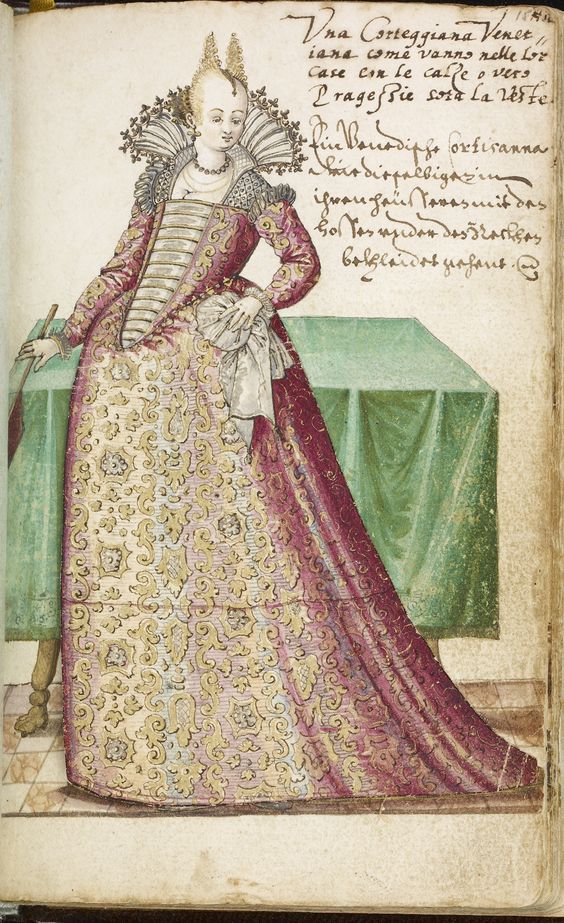 Vna Corteggiana Venet„
iana come vanno nelle lor
case con le calze o vero
Bragessie sota la veste
Ein Venedische Cortisanna
wie dieselbigen in
ihren heüsseren mit den
hossen vnder den Rockhen
bekhleidet gehent